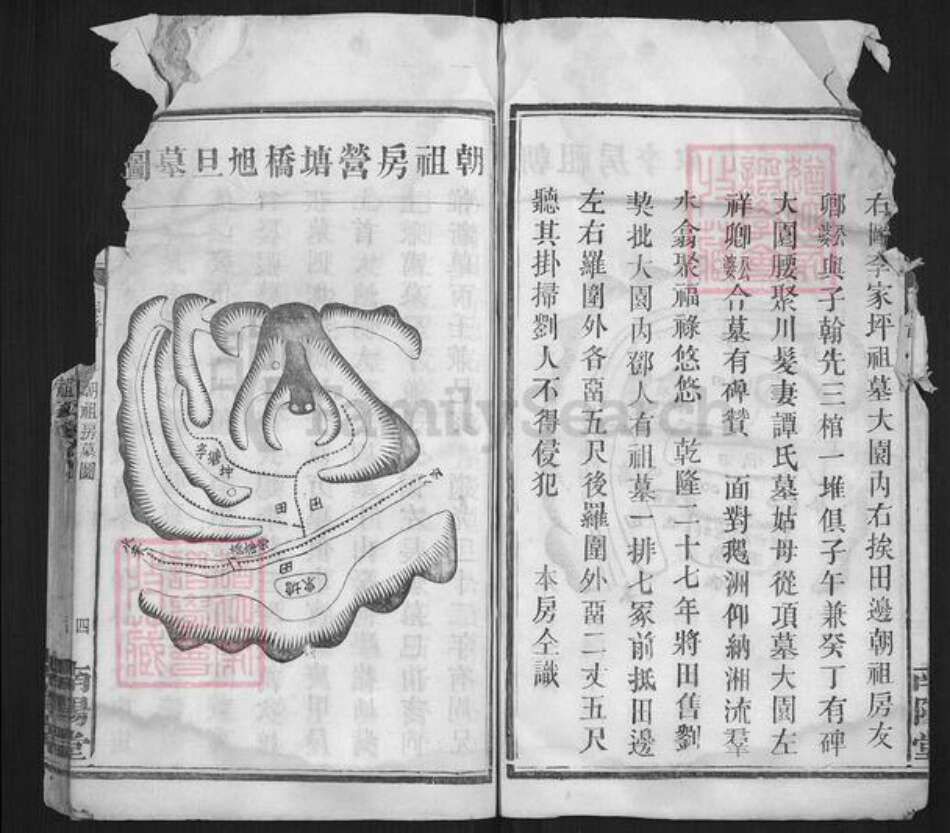 右圖李家坪祖墓大園内右挨田邊朝祖房友
卿公婆與子翰先三棺一堆俱子午兼癸丁有碑
大園腰聚川髮妻譚氏墓姑母從項墓大園左
祥卿公婆合墓有碑贊　面對鵝洲仰納湘流羣
水翕聚福祿悠悠　乾隆二十七年將田售劉
契批大園内鄧人有祖墓一排七冢前抵田邊
左右羅圍外各畱五尺後羅圍外畱二丈五尺
聽其掛掃劉人不得侵犯　　本房仝識
南陽堂
朝祖房營塘橋旭旦墓圖
田
田
田
朝祖房墓圖
四
南陽堂
FamilySearch